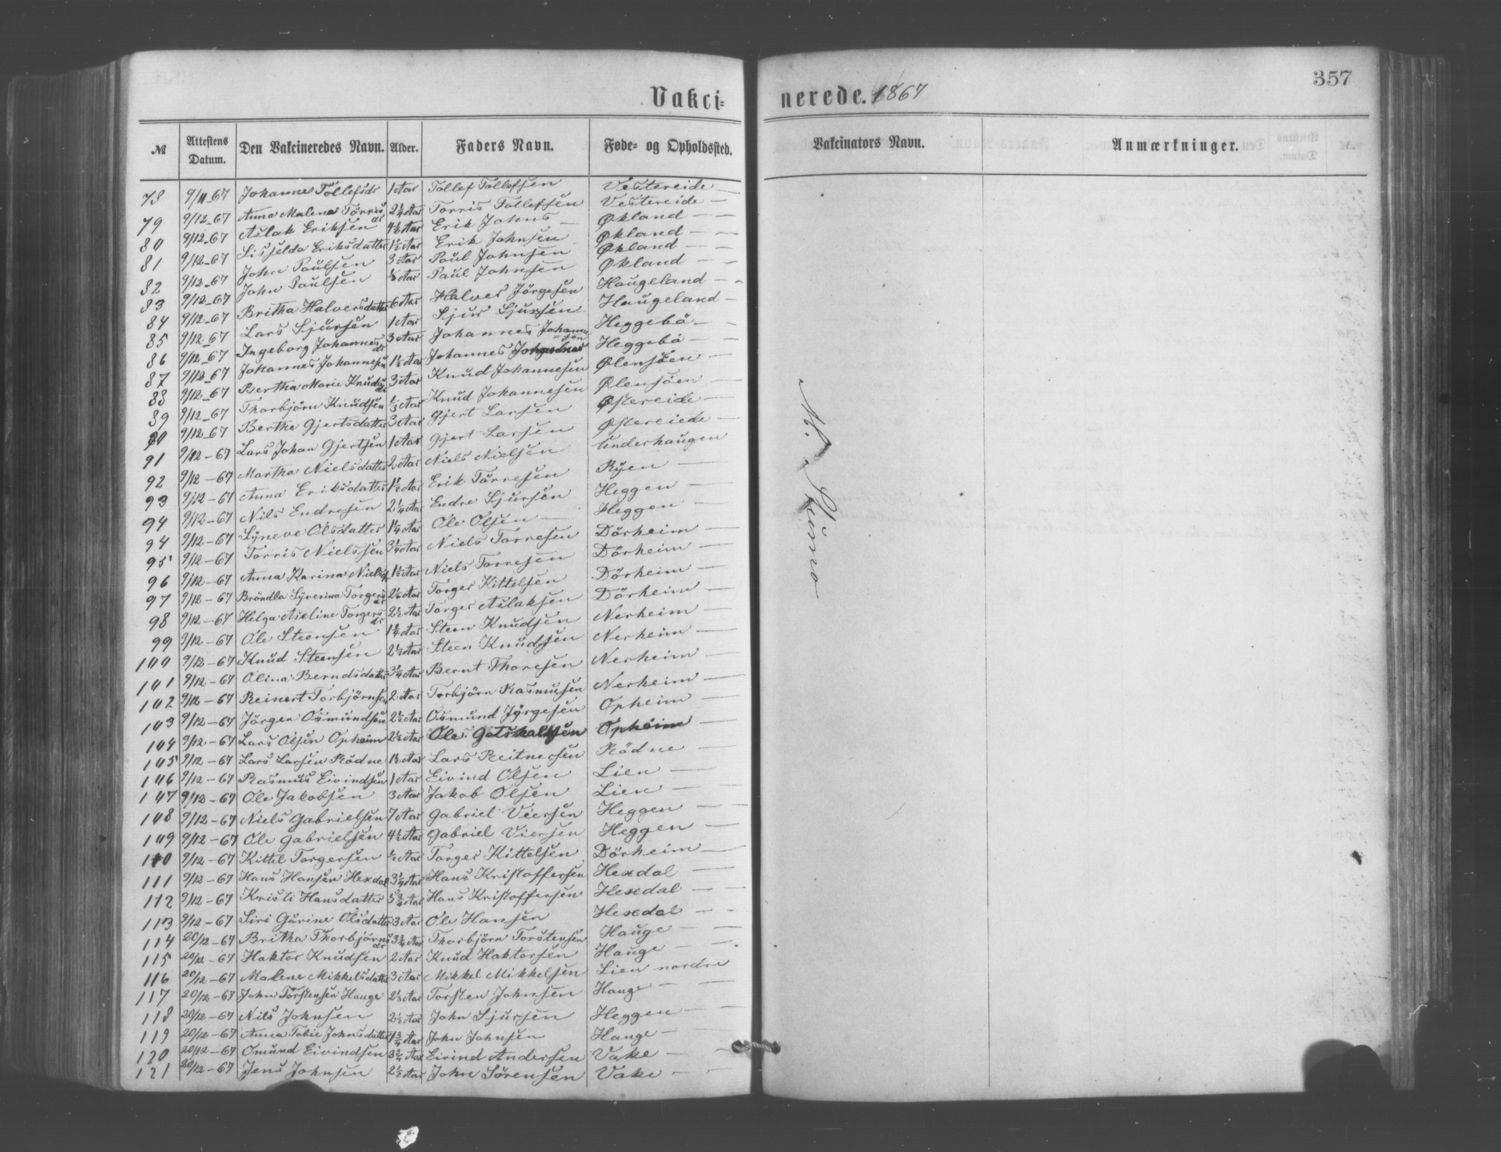 357
Vakci= nerede. 1867
№ Attestens Datum. Den Vakcineredes Navn. Alder. Faders Navn. Føde- og Opholdssted. Vakcinators Navn. Anmærkninger.
78 9/11 67 Johannes Tollefs 1 Aar Tollef Tollefsen Vestereide —
79 9/12 67 Anna Malena Torris ds 2¼ Aar Torris Tollefsen Vestereide —
80 9/12 67 Aslak Eriksen Aar Erik Økland —
81 9/12 67 Eriksdatter Aar Erik Johnsen Økland —
82 9/12 67 John Paulsen 3 Aar Paul Johnsen Økland —
83 9/12 67 John Paulsen Aar Paul Johnsen Økland —
84 9/12 67 Britha Halversdatter 6 Aar Halver Jörgesen Haugeland —
85 9/12 67 Lars Sjursen 1 Aar Sjur Sjursen Haugeland —
86 9/12 67 Ingeborg Johannes ds 3 Aar Johannes Johannesen Heggebö —
87 9/12 67 Johannes Johannesen 1½ Aar Johannes Heggebö —
88 9/12 67 Bertha Marie Knuds ds 3 Aar Knud Johannesen Ølensöen —
89 9/12 67 Thorbjörn Knudsen ½ Aar Knud Johannesen Ølensöen —
90 9/12 67 Berthe Gjertsdatter 3 Aar Gjert Larsen Østereide —
91 9/12 - 67 Lars Johan Gjertsen 1 Aar Gjert Larsen Østereiede —
92 9/12 - 67 Martha Nielsdatter 2 Aar Niels Nielsen Underhaugen
93 9/12 - 67 Anna Eriksdatter 1½ Aar Erik Törresen Ryen —
94 9/12 - 67 Nils Endresen 2¼ Aar Endre Sjursen Heggen —
94 9/12 - 67 Syneve Olsdatter 1¼ Aar Ole Olsen — Heggen —
95 9/12 - 67 Torris Nielssen 3¼ Aar Niels Torresen Dörheim —
96 9/12 - 67 Anna Karina Niels 1½ Aar Niels Torresen Dörheim —
97 9/12 - 67 Syverina Torgers ds 2½ Aar Torger Kittelsen Dörheim —
98 9/12 - 67 Helga Aseline Torgers ds 2½ Aar Torger Aslaksen Dörheim —
99 9/12 - 67 Ole Steensen 1¼ Aar Steen Knudsen Nerheim —
100 9/12 - 67 Knud Steensen 2½ Aar Steen Knudsen Nerheim —
101 9/12 - 67 Olina Berndsdatter 3¼ Aar Bernt Thoresen Nerheim —
102 9/12 - 67 Reinert Torbjörnsen 2 Aar Torbjörn Rasmussen Nerheim —
103 9/12 - 67 Jörgen Osmundsen 2½ Aar Osmund Jörgesen Opheim —
104 9/12 - 67 Lars Olsen Opheim 2½ Aar Ole Gotskalksen Opheim —
105 9/12 - 67 Lars Larsen Rödne Aar Lars Reinertsen Rödne —
106 9/12 - 67 Rasmus Eivindsen 1 Aar Eivind Olsen Lien —
107 9/12 - 67 Ole Jakobsen 3 Aar Jakob Olsen Lien —
108 9/12 - 67 Niels Gabrielsen 7 Aar Gabriel Viersen Heggen —
109 9/12 - 67 Ole Gabrielsen 4½ Aar Gabriel Viersen Heggen —
110 9/12 - 67 Kittel Torgersen ½ Aar Torger Kittelsen Dörheim —
111 9/12 - 67 Hans Hansen Hexdal 3¼ Aar Hans Kristoffersen Hexdal —
112 9/12 - 67 Kristi Hansdatter Aar Hans Kristoffersen Hexdal —
113 9/12 - 67 Siri Gurine Olsdatter 3 Aar Ole Hansen Hexdal —
114 20/12 - 67 Britha Thorbjörns ds 3¾ Aar Thorbjörn Torstensen Hauge —
115 20/12 - 67 Haktor Knudsen 2 Aar Knud Haktorsen Hauge —
116 20/12 - 67 Malene Mikkelsdatter 3 Aar Mikkel Mikkelsen Lien nordre
117 20/12 - 67 John Torstensen Hauge 2½ Aar Torsten Johnsen Hauge —
118 20/12 - 67 Nils Johnsen 2½ Aar John Sjursen Heggen —
119 20/12 - 67 Anna Tobie Johnsdatter 1¾ Aar John Johnsen Hauge —
120 20/12 - 67 Omund Eivindsen 3¾ Aar Eivind Andersen Vake —
121 20/12 - 67 Jens Johnsen 2½ Aar John Sörensen Vake —